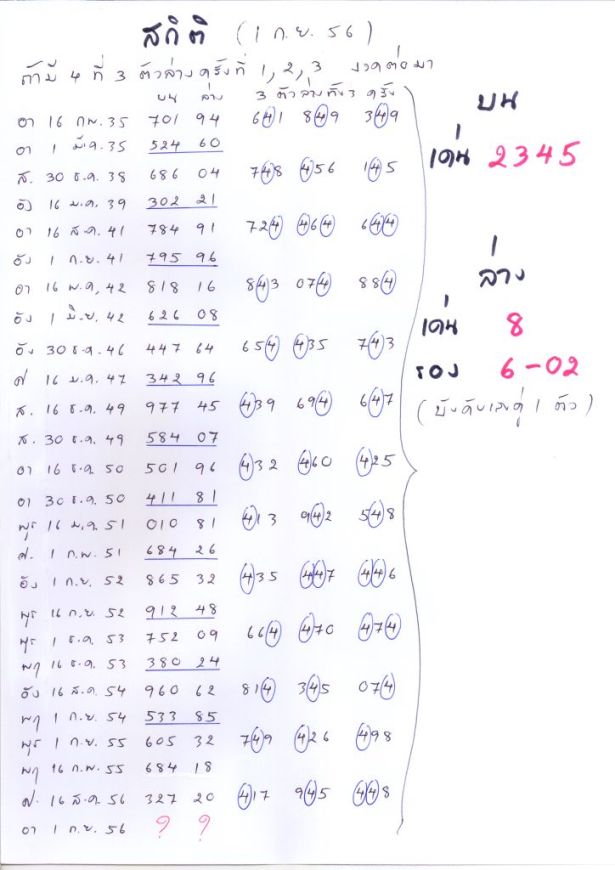 สถิติ (1 ก.ย. 56)
ถ้ามี 4 ที่ 3 ตัวล่างครั้งที่ 1, 2, 3 งวดต่อมา
บน ล่าง 3 ตัวล่างทั้ง 3 ครั้ง
อา 16 กพ. 35 701 94 641 849 349
อา 1 มี.ค. 35 524 60
ส. 30 ธ.ค. 38 686 04 748 456 145
อัง 16 ม.ค. 39 302 21
อา 16 ส.ค. 41 784 91 724 464 644
อัง 1 ก.ย. 41 795 96
อา 16 พ.ค, 42 818 16 843 074 884
อัง 1 มิ.ย. 42 626 08
อัง 30 ธ.ค. 46 447 64 654 435 743
ศ 16 ม.ค. 47 342 96
ส. 16 ธ.ค. 49 977 45 439 694 647
ส. 30 ธ.ค. 49 584 07
อา 16 ธ.ค. 50 501 96 432 460 425
อา 30 ธ.ค. 50 411 81
พุธ 16 ม.ค. 51 010 81 413 942 548
ศ. 1 ก.พ. 51 684 26
อัง 1 ก.ย. 52 865 32 435 447 446
พุธ 16 ก.ย. 52 912 48
พุธ 1 ธ.ค. 53 752 09 664 470 474
พฤ 16 ธ.ค. 53 380 24
อัง 16 ส.ค. 54 960 62 814 345 074
พฤ 1 ก.ย. 54 533 85
พุธ 1 ก.ย. 55 605 32 749 426 498
พฤ 16 ก.พ. 55 684 18
ศ. 16 ส.ค. 56 327 20 417 945 448
อา 1 ก.ย. 56 ? ?
บน
เด่น 2345
ล่าง
เด่น 8
รอง 6-02
(บังคับเลขคู่ 1 ตัว)